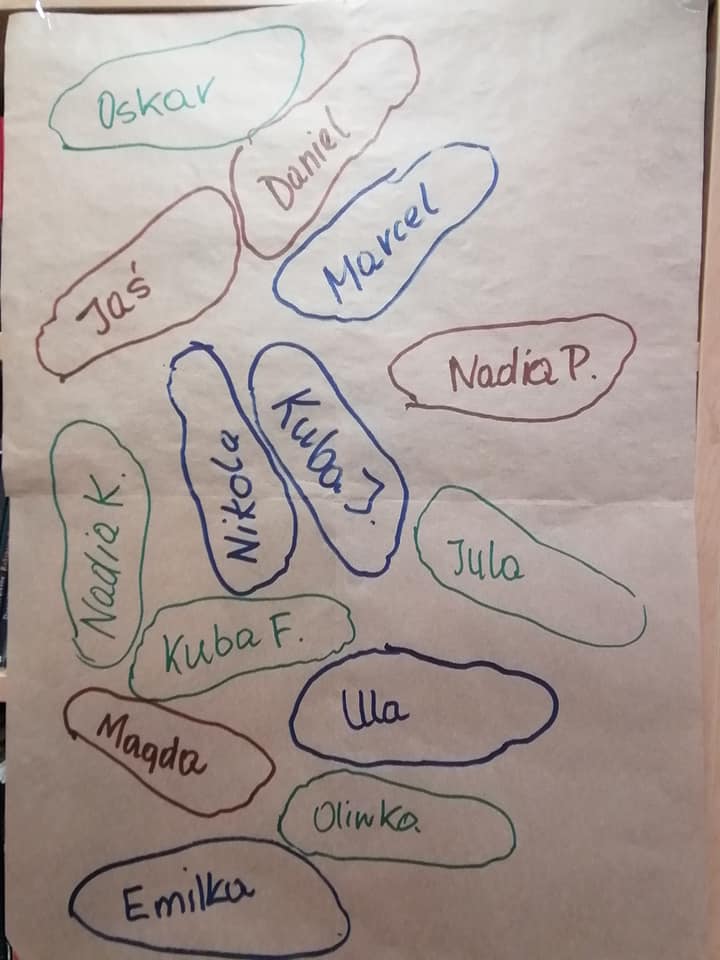 Oskar
Daniel
Marcel
Jaś
Nadia P.
Nikola
Kuba J.
Nadia K.
Jula
Kuba F.
Ula
Magda
Oliwka
Emilka